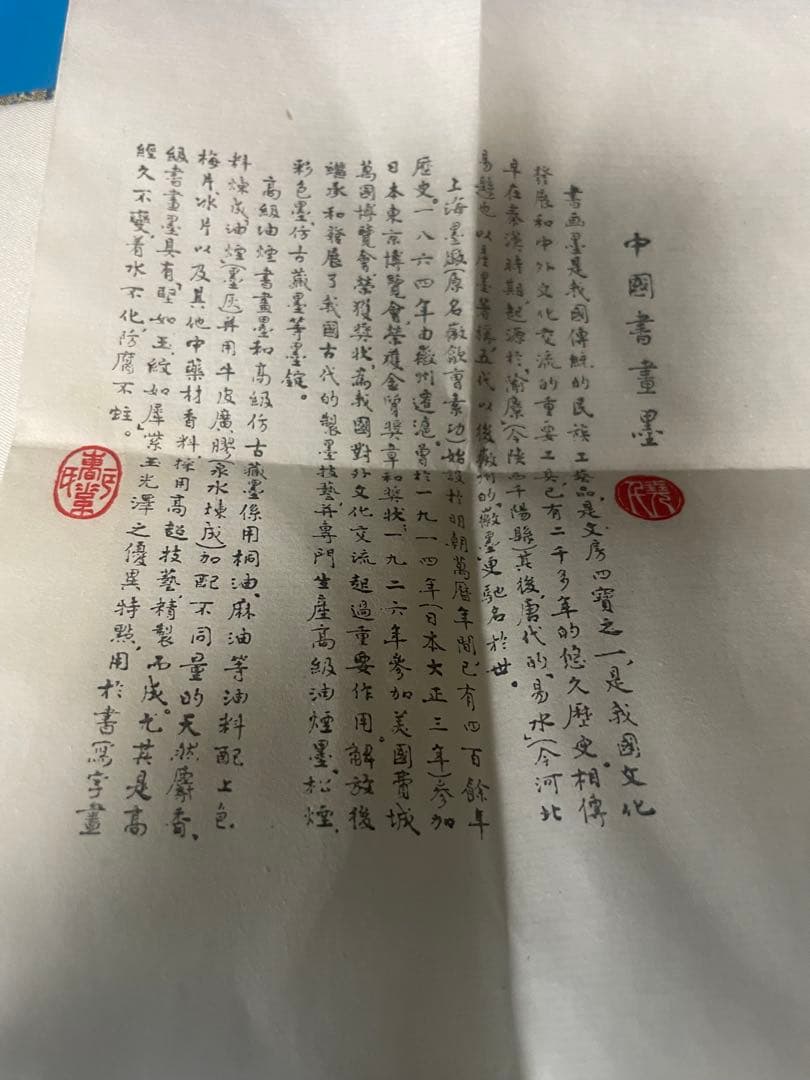 中國書畫墨
書画墨是我國傳統的民族工藝品,是文房四寶之一,是我國文化
發展和中外文化交流的重要工具,已有二千多年的悠久歷史。相傳
早在秦漢時期,起源於“隃糜”(今陝西千陽縣)其後,唐代的“易水”(今河北
易縣)也以產墨著稱,五代以後徽州的“徽墨”更馳名於世。
上海墨廠(原名徽歙曹素功)始設於明朝萬曆年間已有四百餘年
歷史。一八六四年由徽州遷滬。曾於一九一四年(日本大正三年)參加
日本東京博覽會,榮獲金質獎章和獎狀,一九二六年參加美國費城
萬國博覽會榮獲獎狀,為我國對外文化交流起過重要作用。解放後
繼承和發展了我國古代的製墨技藝,并專門生產高級油煙墨、松煙、
彩色墨、仿古藏墨等墨錠。
高級油煙書畫墨和高級仿古藏墨係用桐油、麻油等油料配上色
料煉成“油煙”(墨灰)并用牛皮廣膠(泉水煉成)加配不同量的天然麝香、
梅片、冰片以及其他中藥材香料,採用高超技藝,精製而成。尤其是高
級書畫墨具有“堅如玉,紋如犀”紫玉光澤之優異特點,用於書寫字畫
經久不變,着水不化,防腐不蛀。